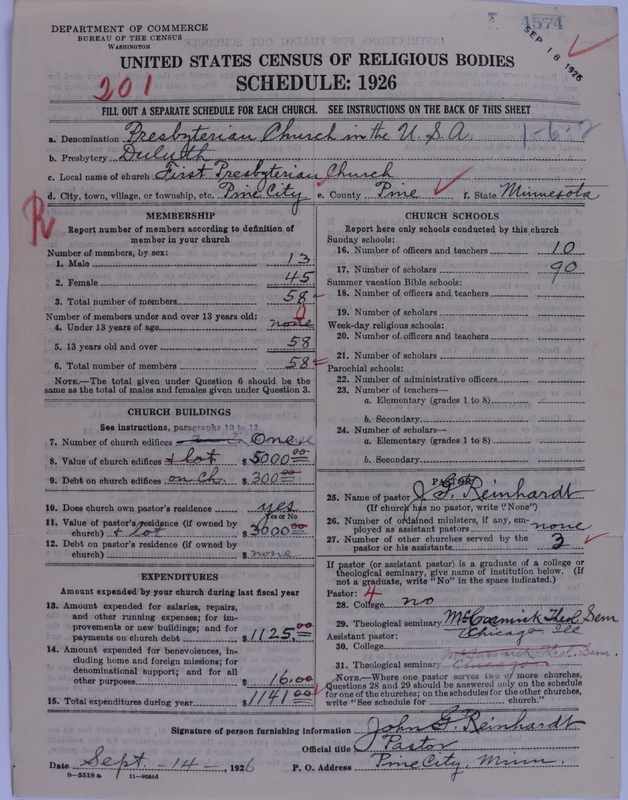 4574
SEP 18 1926
DEPARTMENT OF COMMERCE
BUREAU OF THE CENSUS
WASHINGTON
UNITED STATES CENSUS OF RELIGIOUS BODIES
SCHEDULE: 1926
201
FILL OUT A SEPARATE SCHEDULE FOR EACH CHURCH. SEE INSTRUCTIONS ON THE BACK OF THIS SHEET
a. Denomination Presbyterian Church in the U.S.A. 1-6-2
b. Presbytery Duluth
c. Local name of church First Presbyterian Church
d. City, town, village, or township, etc. Pine City e. County Pine f. State Minnesota
R
MEMBERSHIP
Report number of members according to definition of
member in your church
Number of members, by sex:
1. Male 13
2. Female 45
3. Total number of members 58
Number of members under and over 13 years old:
4. Under 13 years of age none 0
5. 13 years old and over 58
6. Total number of members 58
NOTE.—The total given under Question 6 should be the
same as the total of males and females given under Question 3.
CHURCH BUILDINGS
See instructions, paragraphs 10 to 12
7. Number of church edifices One
8. Value of church edifices & lot $ 5000.00
9. Debt on church edifices on Ch. $ 300.00
10. Does church own pastor's residence? yes
Yes or No
11. Value of pastor's residence (if owned by
church) & lot $ 3000.00
12. Debt on pastor's residence (if owned by
church) $ none
EXPENDITURES
Amount expended by your church during last fiscal year
13. Amount expended for salaries, repairs,
and other running expenses; for im-
provements or new buildings; and for
payments on church debt $ 1125.00
14. Amount expended for benevolences, in-
cluding home and foreign missions; for
denominational support; and for all
other purposes $ 16.00
15. Total expenditures during year $ 1141.00
CHURCH SCHOOLS
Report here only schools conducted by this church
Sunday schools:
16. Number of officers and teachers 10
17. Number of scholars 90
Summer vacation Bible schools:
18. Number of officers and teachers
19. Number of scholars
Week-day religious schools:
20. Number of officers and teachers
21. Number of scholars
Parochial schools:
22. Number of administrative officers
23. Number of teachers—
a. Elementary (grades 1 to 8)
b. Secondary
24. Number of scholars—
a. Elementary (grades 1 to 8)
b. Secondary
PASTOR
25. Name of pastor J. G. Reinhardt
(If church has no pastor, write "None")
26. Number of ordained ministers, if any, em-
ployed as assistant pastors none
27. Number of other churches served by the
pastor or his assistants 3
If pastor (or assistant pastor) is a graduate of a college or
theological seminary, give name of institution below. (If
not a graduate, write "No" in the space indicated.)
Pastor: 4
28. College no
29. Theological seminary McCormick Theol. Sem
Chicago Ill
Assistant pastor:
30. College
McCormick Theol. Sem.
31. Theological seminary Chicago
NOTE.—Where one pastor serves two or more churches,
Questions 28 and 29 should be answered only on the schedule
for one of the churches; on the schedules for the other churches,
write "See schedule for church."
Signature of person furnishing information John G Reinhardt
Official title Pastor
Date Sept. 14, 1926 P. O. Address Pine City, Minn.
8—5518 a